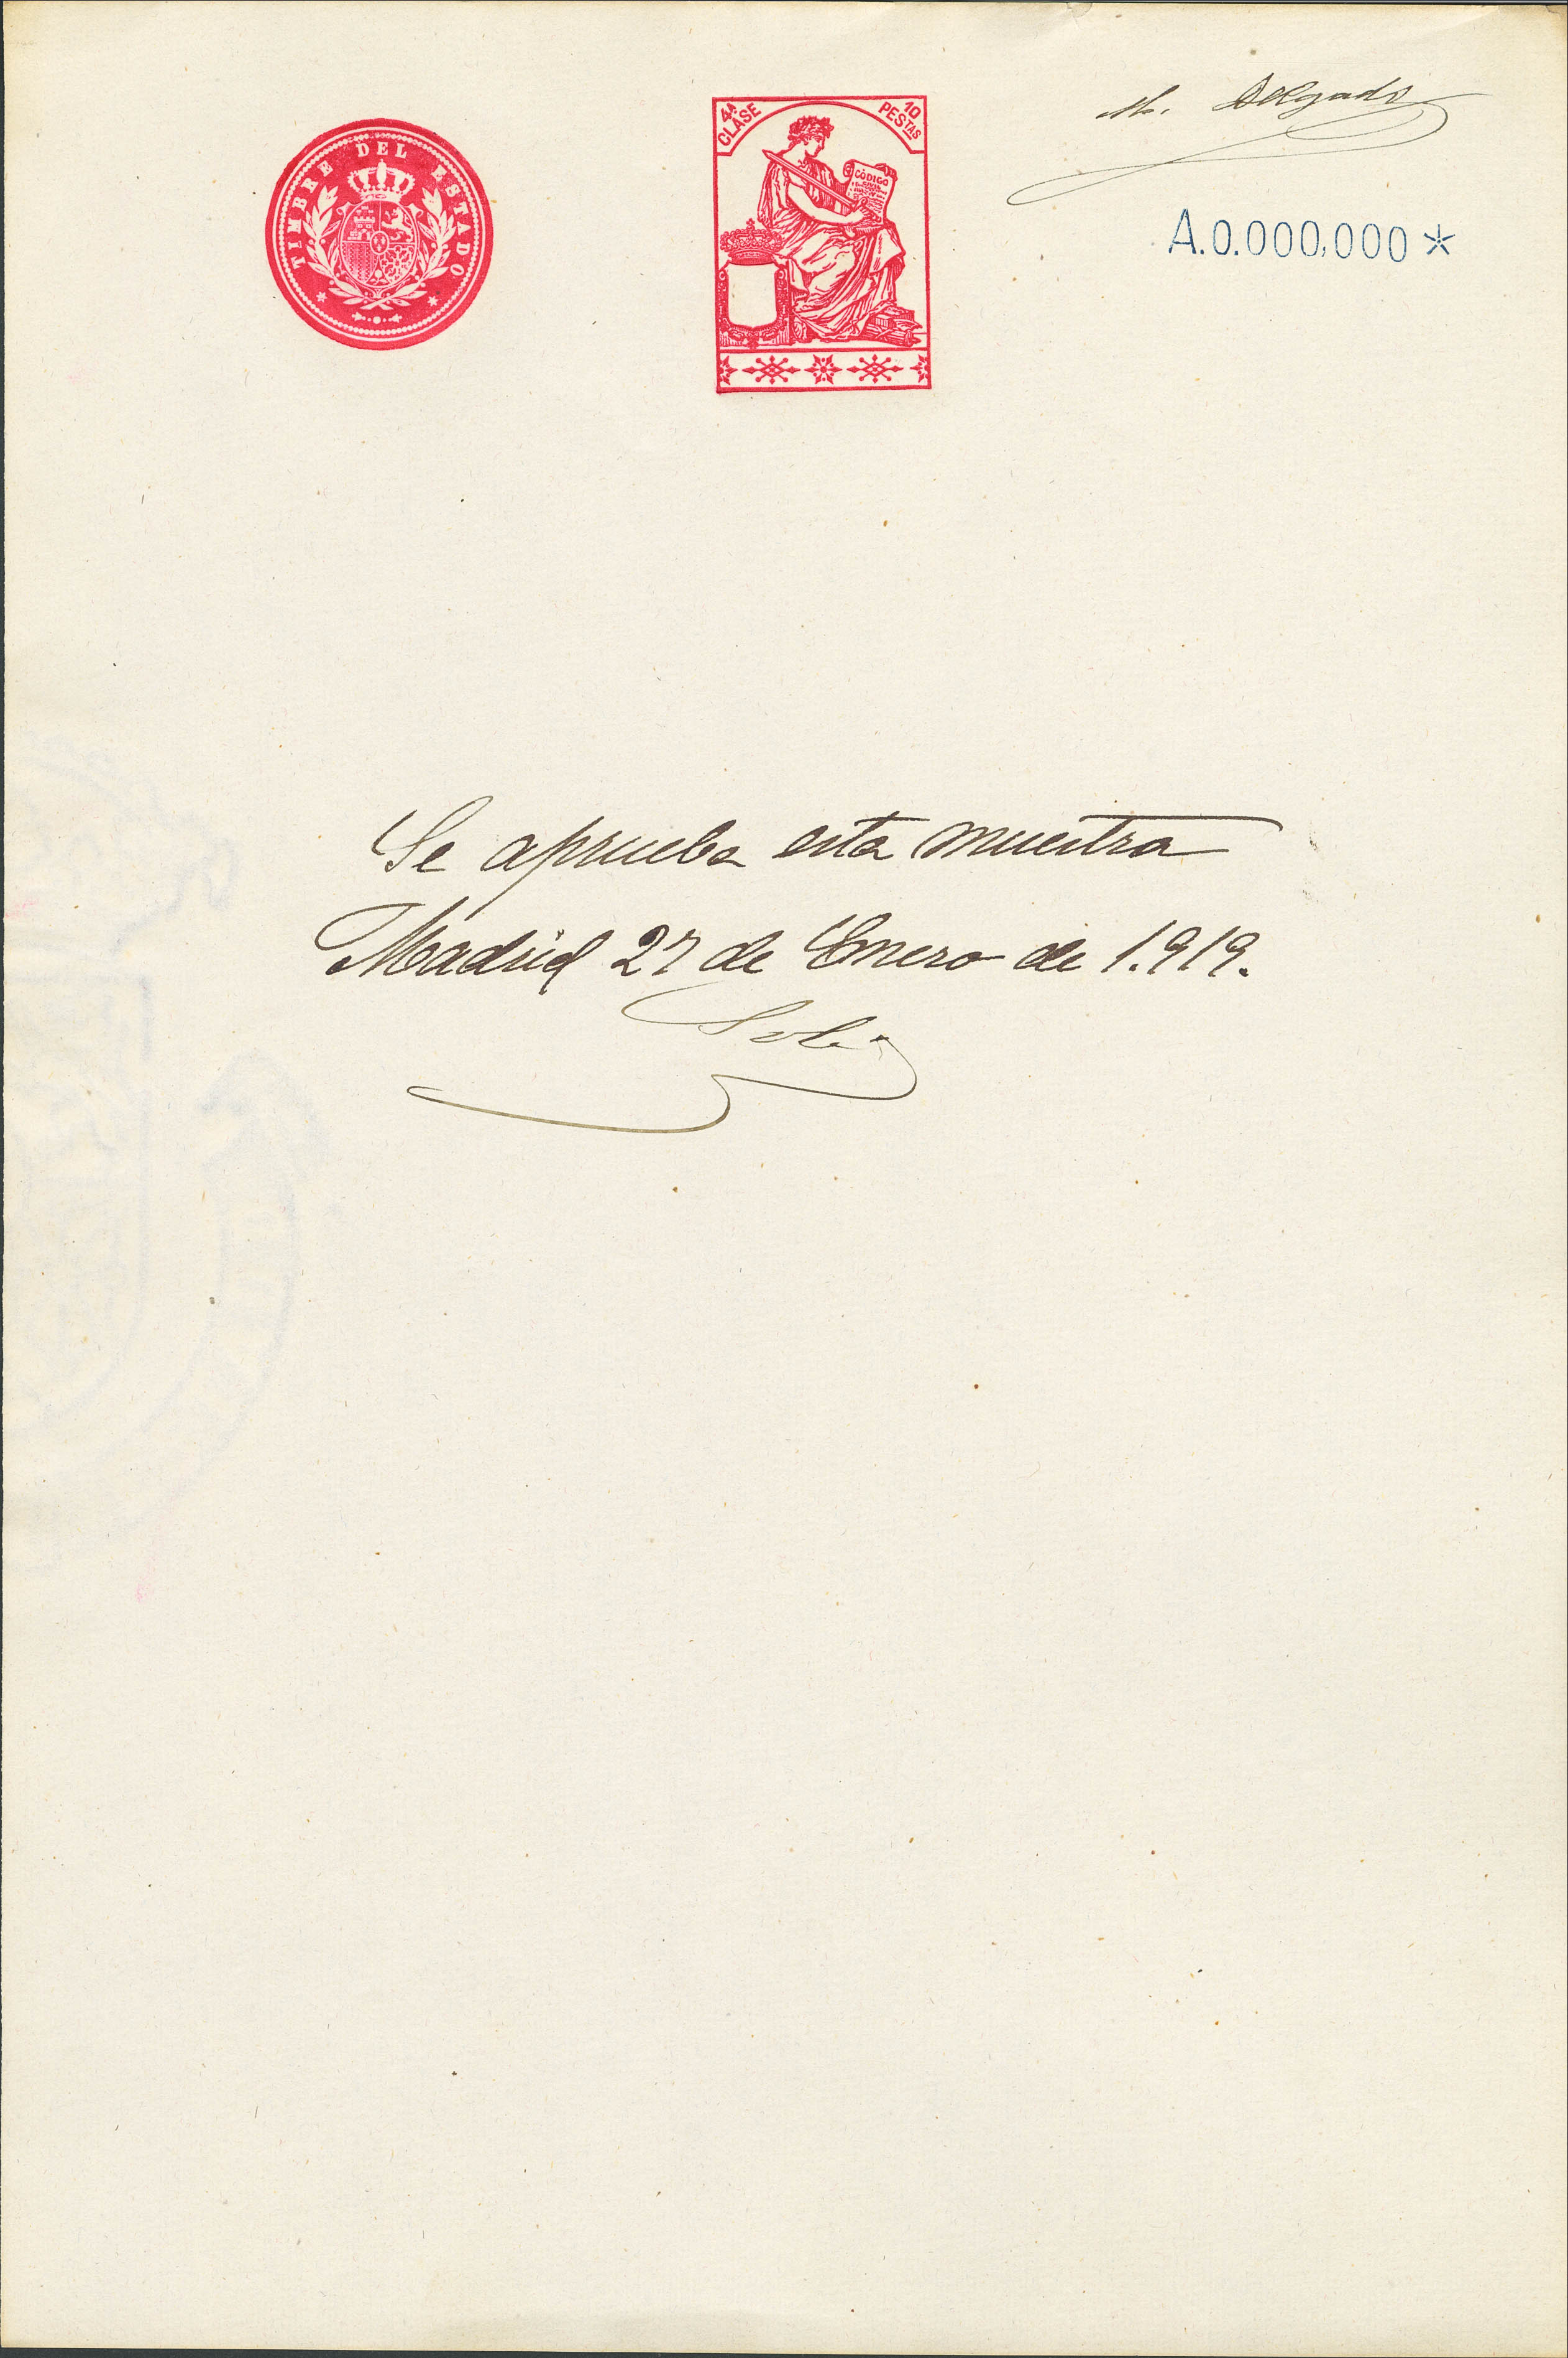 TIMBRE DEL ESTADO
4ª CLASE
10 PESTAS
CÓDIGO
CIVIL
M. Delgado
A.0.000,000*
Se aprueba esta muestra
Madrid 27 de Enero de 1.919.